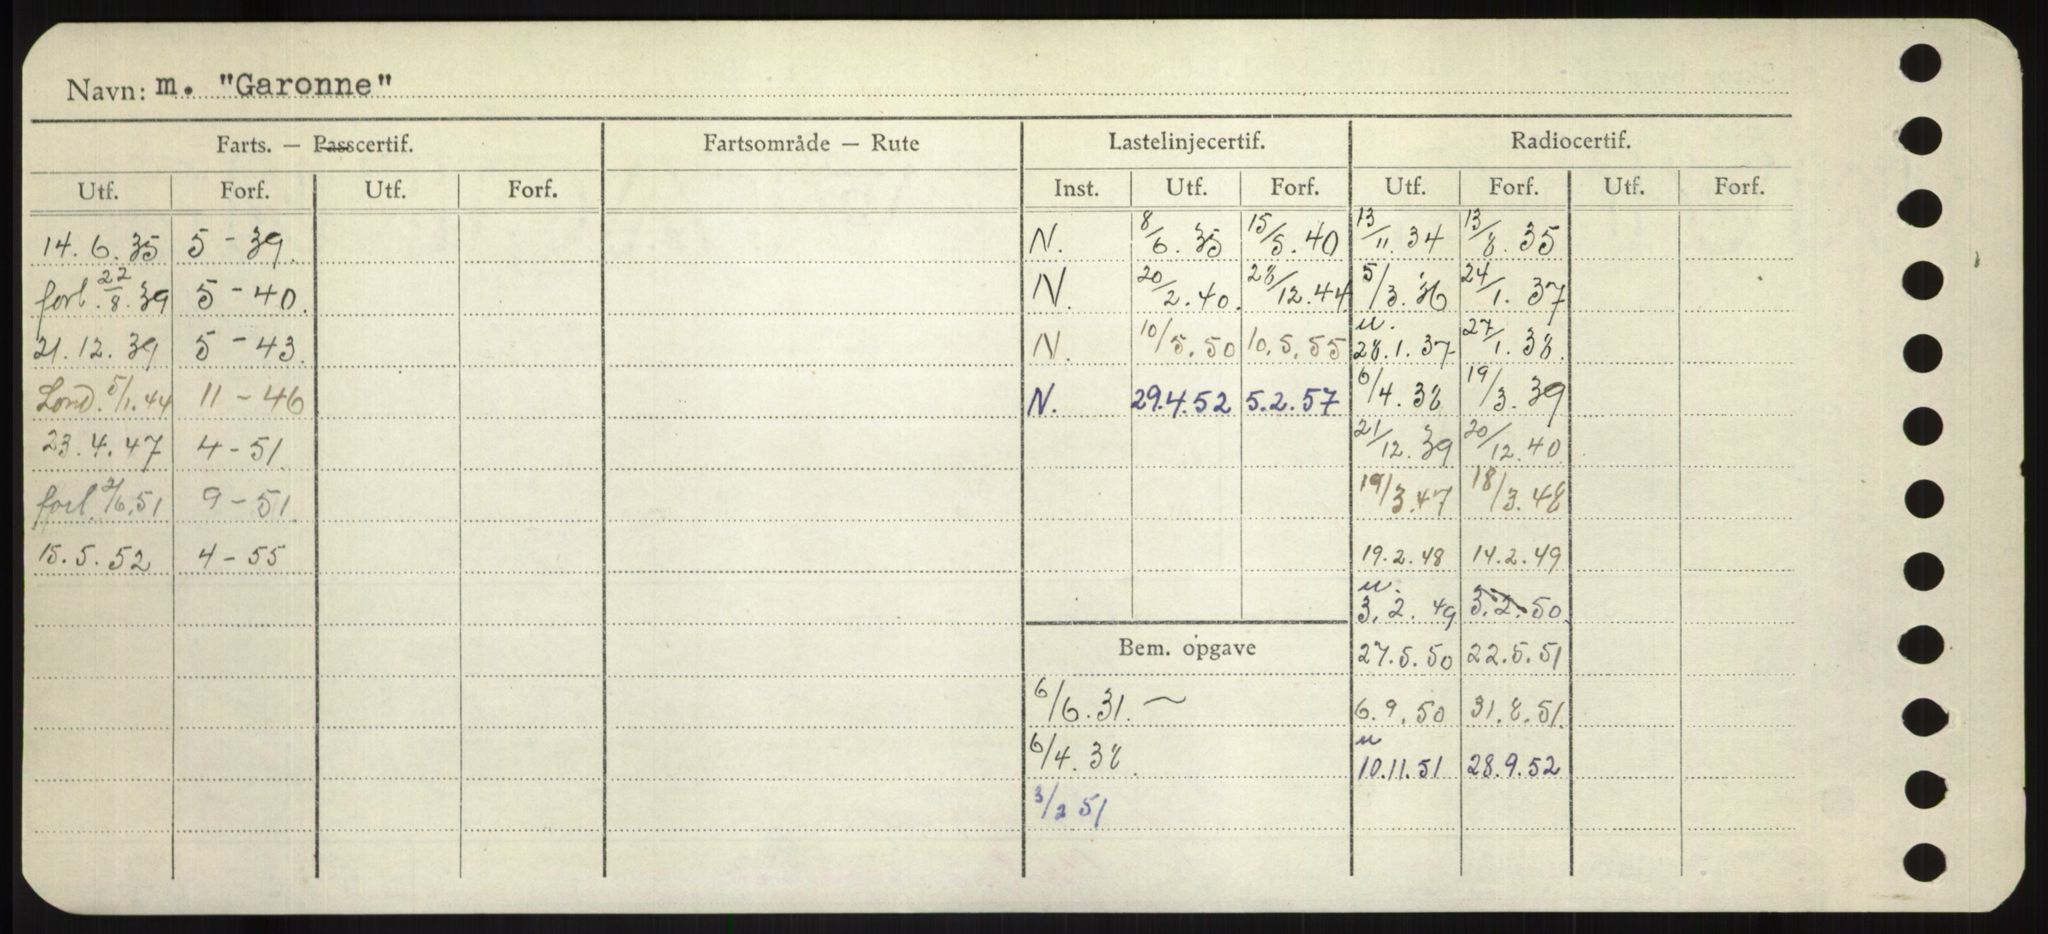 Navn: m. "Garonne"
Farts. — Passcertif. Fartsområde — Rute Lastelinjecertif. Radiocertif.
Utf. Forf. Utf. Forf. Inst. Utf. Forf. Utf. Forf. Utf. Forf.
14. 6. 35 5 - 39. N. 8/6. 35 15/5. 40 13/11. 34 13/8. 35
forl. 22/8. 39 5 - 40. N. 20/2. 40. 28/12. 44 5/3. 36 24/1. 37
21. 12. 39 5 - 43. N. 10/5. 50 10. 5. 55 u. 28. 1. 37 27/1. 38.
Lond. 5/1. 44 11 - 46 N. 29.4.52 5.2.57 6/4. 38 19/3. 39
23. 4. 47 4 - 51. 21/12. 39 20/12. 40.
forl. 2/6. 51 9 - 51. 19/3. 47 18/3. 48
15. 5. 52 4 - 55 19. 2. 48 14. 2. 49
u. 3. 2. 49 3. 2. 50.
Bem. opgave 27. 5. 50 22. 5. 51
6/6. 31. ~ 6. 9. 50 31. 8. 51.
6/4. 38 u 10.11.51 28.9.52
3/2 51